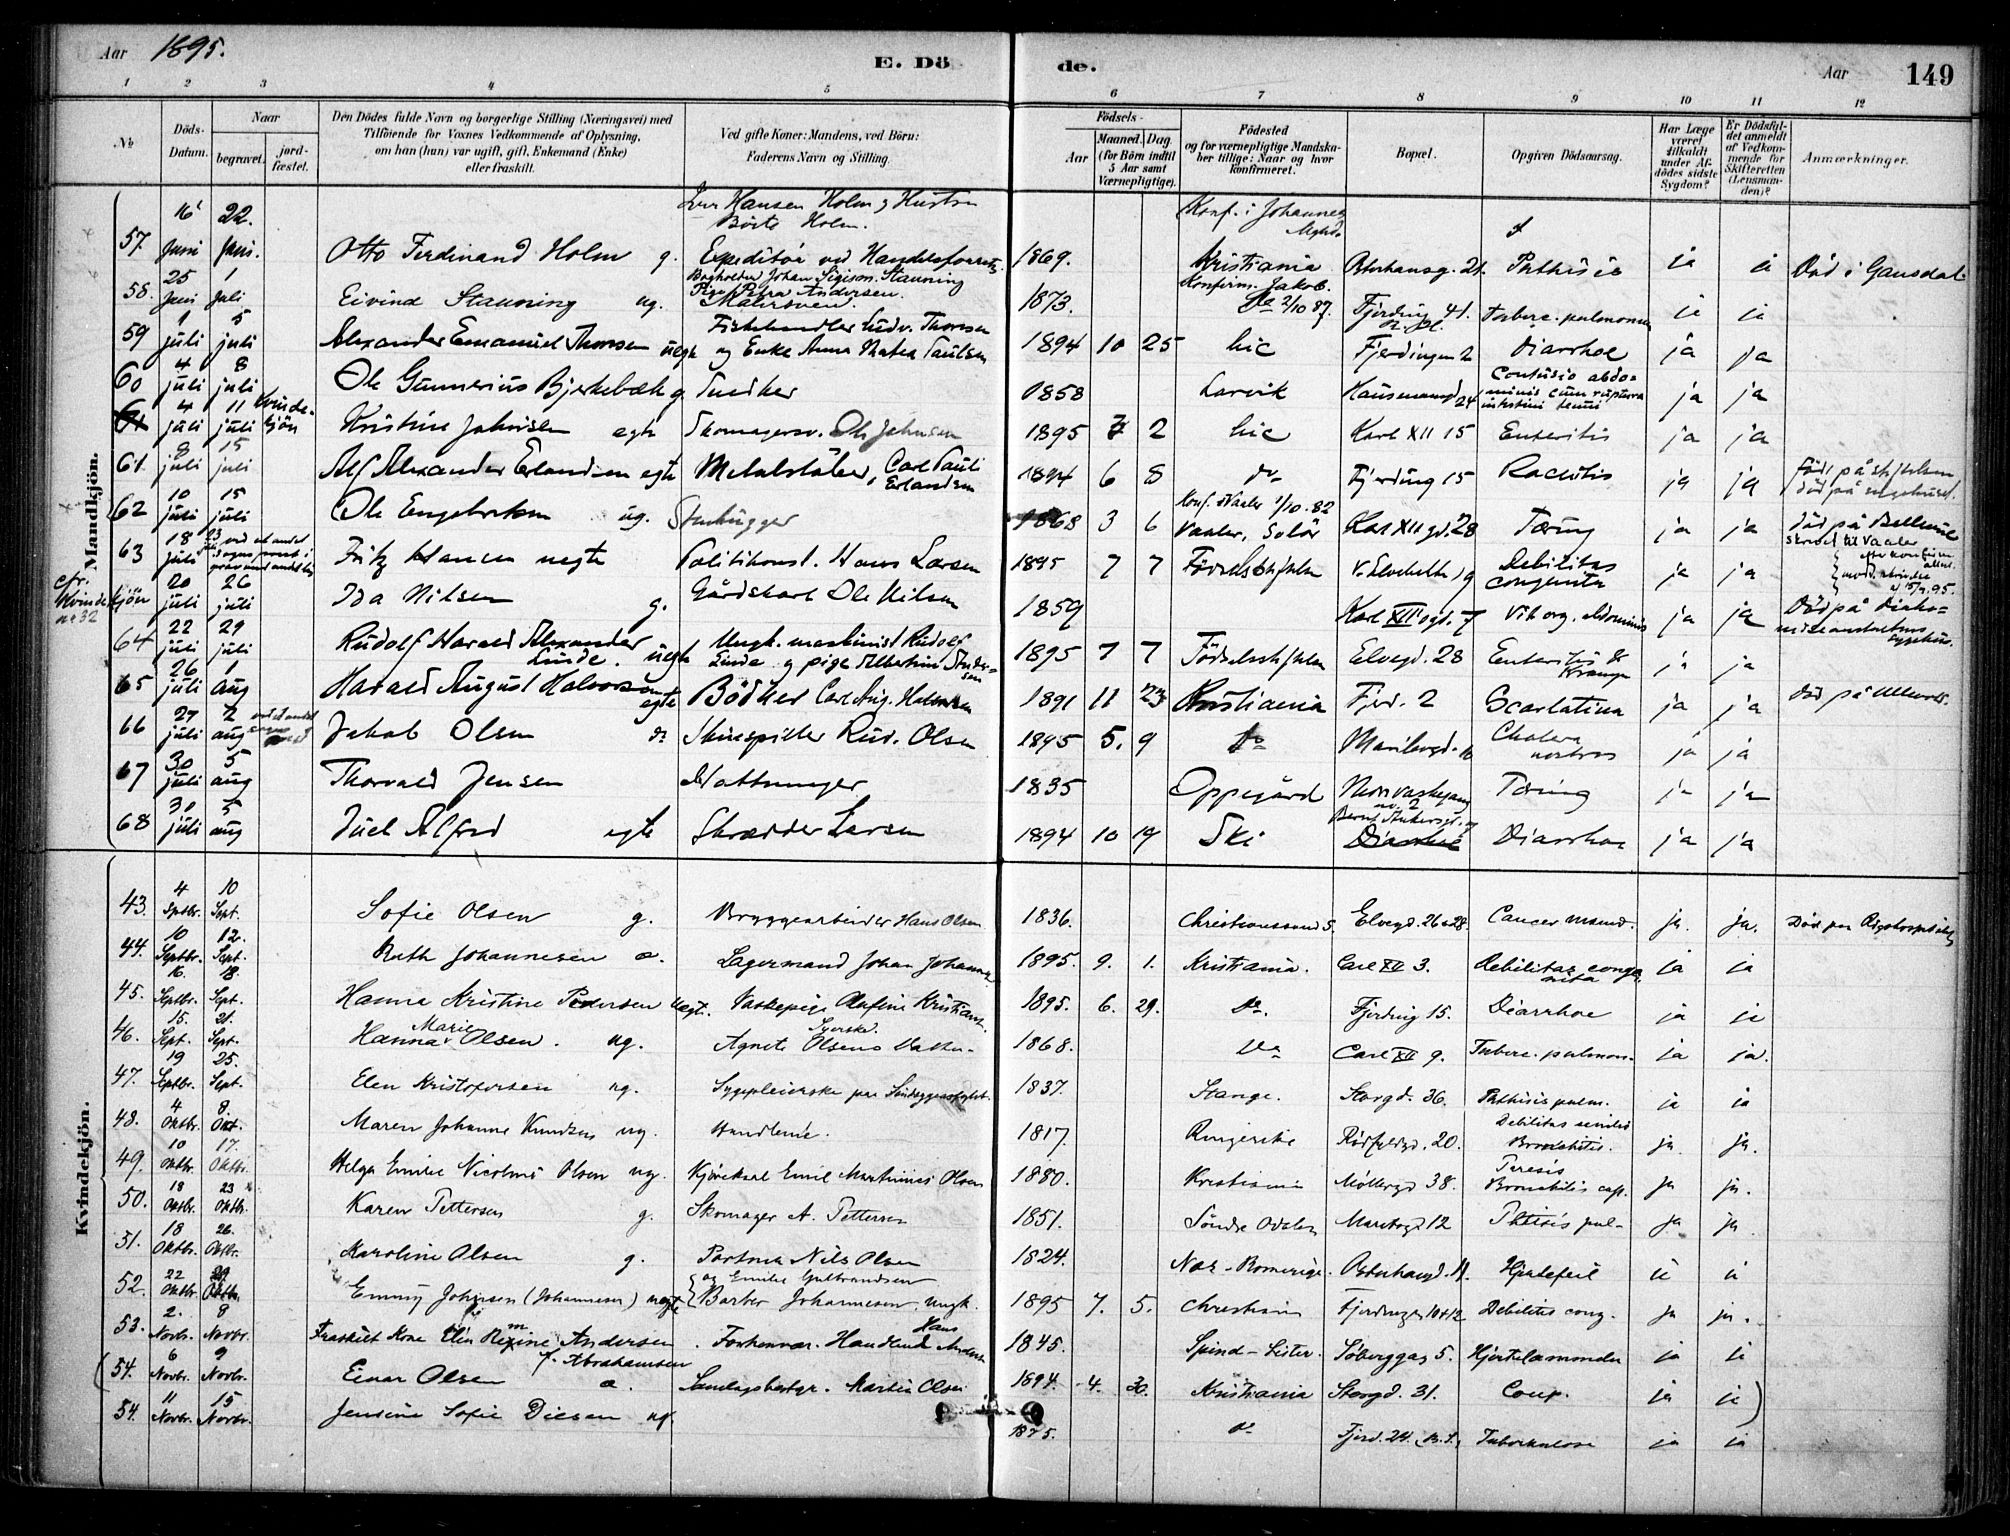 Aar 1895.
E. Dö de.
Aar 149
1 2 3 4 5 6 7 8 9 10 11 12
No
Döds-Datum.
Naar
begravet.
jordfæstet.
Den Dödes fulde Navn og borgerlige Stilling (Næringsvei) med
Tilföiende for Voxnes Vedkommende af Oplysning,
om han (hun) var ugift, gift, Enkemand (Enke)
eller fraskilt.
Ved gifte Koner: Mandens, ved Börn:
Faderens Navn og Stilling.
Födsels-
Aar
Maaned. Dag.
(for Börn indtil
5 Aar samt
Værnepligtige).
Födested
og for værnepligtige Mandska-
ber tillige: Naar og hvor
konfirmeret.
Bopæl.
Opgiven Dödsaarsag.
Har Læge
været
tilkaldt
under Af-
dödes sidste
Sygdom?
Er Dödsfal-
det anmeldt
af Vedkom-
mende for
Skifteretten
(Lensman-
den)?
Anmærkninger.
Mandkjön.
57. 16 Juni 22. Juni. Otto Ferdinand Holm g. Hansen Holm og Hustru Holm. Expeditör ved 1869. Konf. i Johannes Kristiania Osterhausg. 21. Phthisis ja ja Död i Gausdal
58. 25 Juni 1 Juli Eivind Stauning ug. Bogholder Johan Stauning Pige Petra Andersen. 1873. Konferm. Jakob. 2/10 87. Fjerding 41. Tuberc. pulmonum ja ja
59 1 juli 5 juli Alexander Emanuel Thomsen uegte Fiskehandler Ludv. Thomsen og Enke Anna Paulsen 1894 10 25 hic Fjerdingen 2 Diarrhoe ja ja
60 4 juli 8 juli Ole Gunnerius Bjerkebæk g Snedker 1858 Larvik Hausmannsgd 24 Contusio abdominis cum ruptura intestini tenui ja ja
61 4 juli 11 juli Kvindekjön Kristine Johnsen egte Skomagersv. Ole Johnsen 1895 7 2 hic Karl XII 15 Enteritis ja ja
61. 9 juli 15 juli Alf Alexander Erlandsen egte Metalstöber, Carl Pauli Erlandsen 1894 6 8 do Fjerding 15 Rachitis ja ja Födt på stiftelsen död på
62 10 juli 15 juli Ole Engebretsen ug. Stenhugger 1868 3 6 Konf. i Vaaler 1/10 82 Vaaler, Solör Karl XII gd. 28 Tæring ja ja Död på Bellevue
63 18 juli Fritz Hansen uegte Politikonst. Hans Larsen 1895 7 7 Födselsstiftelsen 19 Debilitas congenita ja ja
cfr. Kvindekjön no 32 20 juli 26 juli Ida Nilsen g. Gårdskarl Ole Nilsen 1859 Karl XII gd. 7 ja ja Död på Diakonisseanstaltens sygehus.
64 22 juli 29 juli Rudolf Harald Alexander Linde. uegte Ungk. maskinist Rudolf Linde og pige Albertine 1895 7 7 Födselsstiftelsen Elvegd. 28 Enteritis & Krampe ja ja
65 26 juli 1 aug Harald August Halvorsen egte Bödker Carl Aug. Halvorsen 1891 11 23 Kristiania Fjerd. 2 Scarlatina ja ja Död på Ullevold.
66 27 juli 2 aug Jakob Olsen do Skuespiller Rud. Olsen 1895 5. 9 do Maribogd. Cholera nostras ja ja
67 30 juli 5 aug Thorvald Jensen Nattmager 1835 Oppegård no. 2 Tæring ja ja
68 30 juli 5 aug Juel Alfred egte Skrædder Larsen 1894 10 19 Ski Bernt Ankersgd. Diarrhoe ja ja
Kvindekjön.
43. 4 Sptbr. 10 Sept. Sofie Olsen g. Bryggearbeider Hans Olsen 1836. Christianssund S. Elvegd. 26 & 28. Cancer mamd. ja. ja. Död paa Rigshospitalet
44. 10 Septbr. 12. Sept. Ruth Johannesen æ. Lagermand Johan Johannes 1895. 9. 1. Kristiania. Carl XII 3. Debilitas congenita ja ja
45. 16. Septbr. 18. Sept. Hanna Kristine Pedersen uegt. Vaskepige Kristians. 1895. 6. 29. Do. Fjerding 15. Diarrhoe ja ja
46. 15. Sept. 21. Sept. Hanna Marie Olsen. ug. Syerske. Agnete Olsens Datter 1868. Do Carl XII 9. Tuberc. pulmon. ja ja.
47. 19 Septbr. 25. Sept. Elen Kristofersen ug. Sygepleierske paa Sindsygeasylet. 1837. Stange. Storgd. 36. Phthisis pulm. ja ja
48. 4 Oktbr. 8 Okt. Maren Johanne Knudsen ug. Handlende. 1817. Ringerike Rödfyldgd. 20. Debilitas senilis Bronchitis. ja ja.
49. 10 Oktbr. 17. Oktbr. Helga Emilie Nicoline Olsen ug. Kjörekarl Emil Martinius Olsen 1880. Kristiania Möllergd 38. Paresis Bronchitis cap. ja ja.
50. 18 Oktbr. 23 Oktbr. Karen Pettersen g. Skomager A. Pettersen 1851. Söndre Odalen 12 Phtisis pul- ja ja
51. 18 Oktbr. 26. Oktbr. Karoline Olsen g. Portner Nils Olsen 1824. Næs - Romerige. Osterhausgd. 11. Hjertefeil ja ja
52. 22 Oktbr. 29 Oktbr. Emmy Johnsen (Johannesen) uegte og Emilie Gulbrandsen Barber Johannesen, ungk. 1895 7. 5. Christiania Fjerdingen 10+12 Debilitas cong. ja ja.
53. 2. Novbr. 8 Novbr. Fraskilt Kone Elen Regine Andersen f. Abrahamsen Forhenvær. Handlende Hans Anders 1845. Spind - Lister. Söberggaz 5. Hjertelammelse ja ja
(54. 6 Novbr. 9 Novbr. Einar Olsen æ. Martin Olsen 1894. 4. 30. Kristiania Storgd. 31. Croup. ja ja)
54. 11 Novbr. 15 Novbr. Jensine Sofie Diesen ug. 1875. do Fjerd. 24. Tuberkulose ja ja